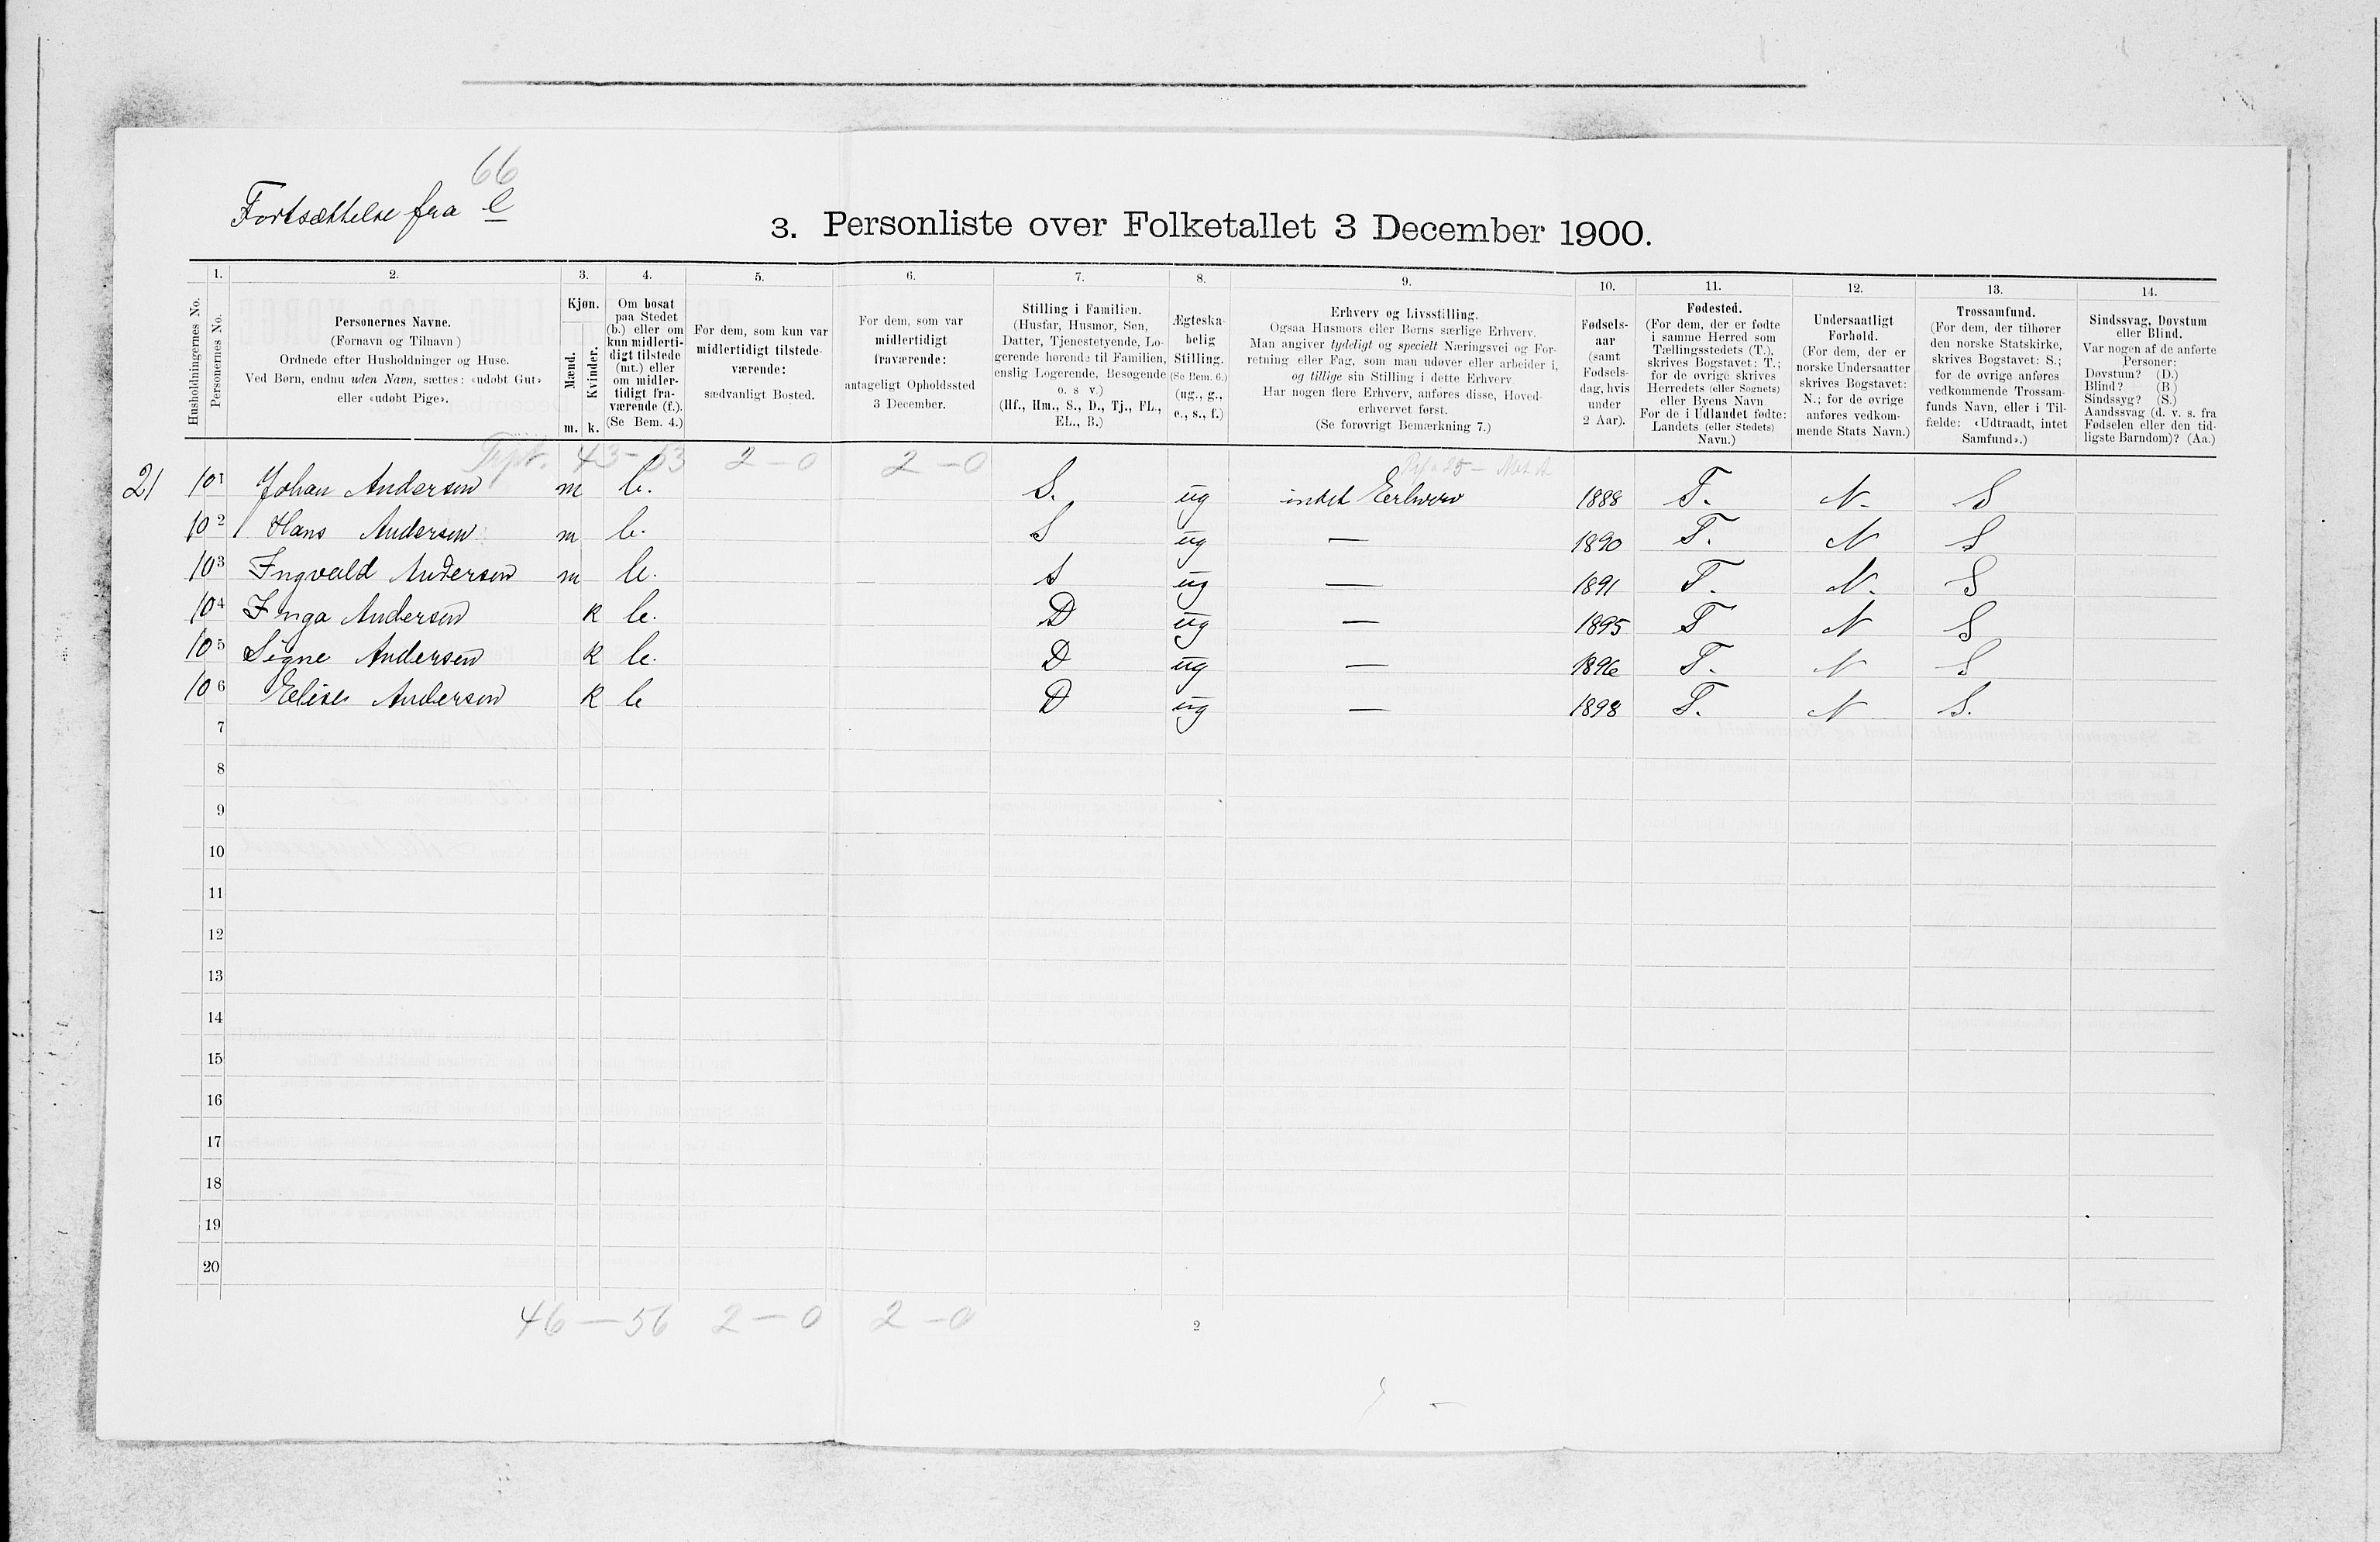 66
Fortsættelse fra C
3. Personliste over Folketallet 3 December 1900.
1. 2. 3. 4. 5. 6. 7. 8. 9. 10. 11. 12. 13. 14.
Husholdningernes No.
Personernes No.
Personernes Navne.
(Fornavn og Tilnavn)
Ordnede efter Husholdninger og Huse.
Ved Børn, endnu uden Navn, sættes: «udøbt Gut»
eller «udøbt Pige».
Kjøn.
Mænd.
Kvinder.
m. k.
Om bosat
paa Stedet
(b.) eller om
kun midlerti-
digt tilstede
(mt.) eller
om midler-
tidigt fra-
værende (f.).
(Se Bem. 4.)
For dem, som kun var
midlertidigt tilstede-
værende:
sædvanligt Bosted.
For dem, som var
midlertidigt
fraværende:
antageligt Opholdssted
3 December.
Stilling i Familien.
(Husfar, Husmor, Søn,
Datter, Tjenestetyende, Lo-
gerende hørende til Familien,
enslig Logerende, Besøgende
o. s v.)
(Hf., Hm., S., D., Tj., FL.,
EL., B.)
Ægteska-
belig
Stilling.
(Se Bem. 6.)
(ug., g.,
e., s., f.)
Erhverv og Livsstilling.
Ogsaa Husmors eller Børns særlige Erhverv.
Man angiver tydeligt og specielt Næringsvei og For-
retning eller Fag, som man udøver eller arbeider i,
og tillige sin Stilling i dette Erhverv.
Har nogen flere Erhverv, anføres disse, Hoved-
erhvervet først.
(Se forøvrigt Bemærkning 7.)
Fødsels-
aar
(samt
Fødsels-
dag, hvis
under
2 Aar).
Fødested.
(For dem, der er fødte
i samme Herred som
Tællingsstedets (T.),
skrives Bogstavet: T.;
for de øvrige skrives
Herredets (eller Sognets)
eller Byens Navn.
For de i Udlandet fødte:
Landets (eller Stedets)
Navn.)
Undersaatligt
Forhold.
(For dem, der er
norske Undersaatter
skrives Bogstavet:
N.; for de øvrige
anføres vedkom-
mende Stats Navn.)
Trossamfund.
(For dem, der tilhører
den norske Statskirke,
skrives Bogstavet: S.;
for de øvrige anføres
vedkommende Trossam-
funds Navn, eller i Til-
fælde: «Udtraadt, intet
Samfund».)
Sindssvag, Døvstum
eller Blind.
Var nogen af de anførte
Personer:
Døvstum? (D.)
Blind? (B.)
Sindssyg? (S.)
Aandssvag (d. v. s. fra
Fødselen eller den tid-
ligste Barndom)? (Aa.)
43-53 2-0 2-0
21 101 Johan Andersen m b. S. ug intet Erhverv 1888 T. N. S
102 Hans Andersen m b. S ug — 1890 T. N S
103 Ingvald Andersen m b. S ug — 1891 T. N. S
104 Inga Andersen k b. D ug — 1895 T N S
105 Signe Andersen k b. D ug — 1896 T. N S
106 Elise Andersen k b D ug — 1898 T. N S.
7
8
9
10
11
12
13
14
15
16
17
18
19
20
46-56 2-0 2-0
2